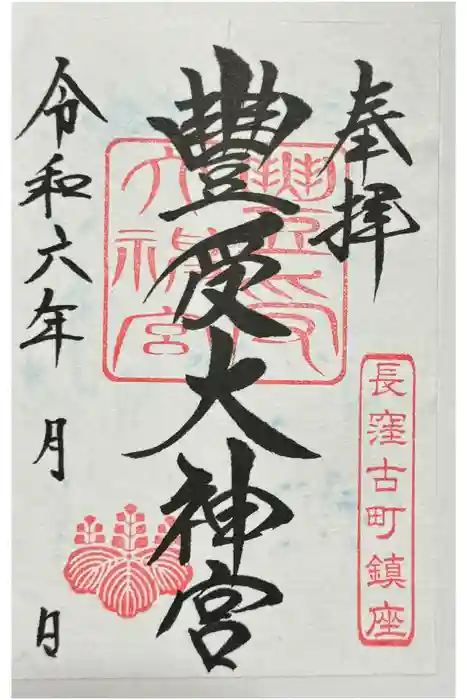 奉拝
長窪古町鎮座
豊受大神宮
豊受大神宮
令和六年 月 日